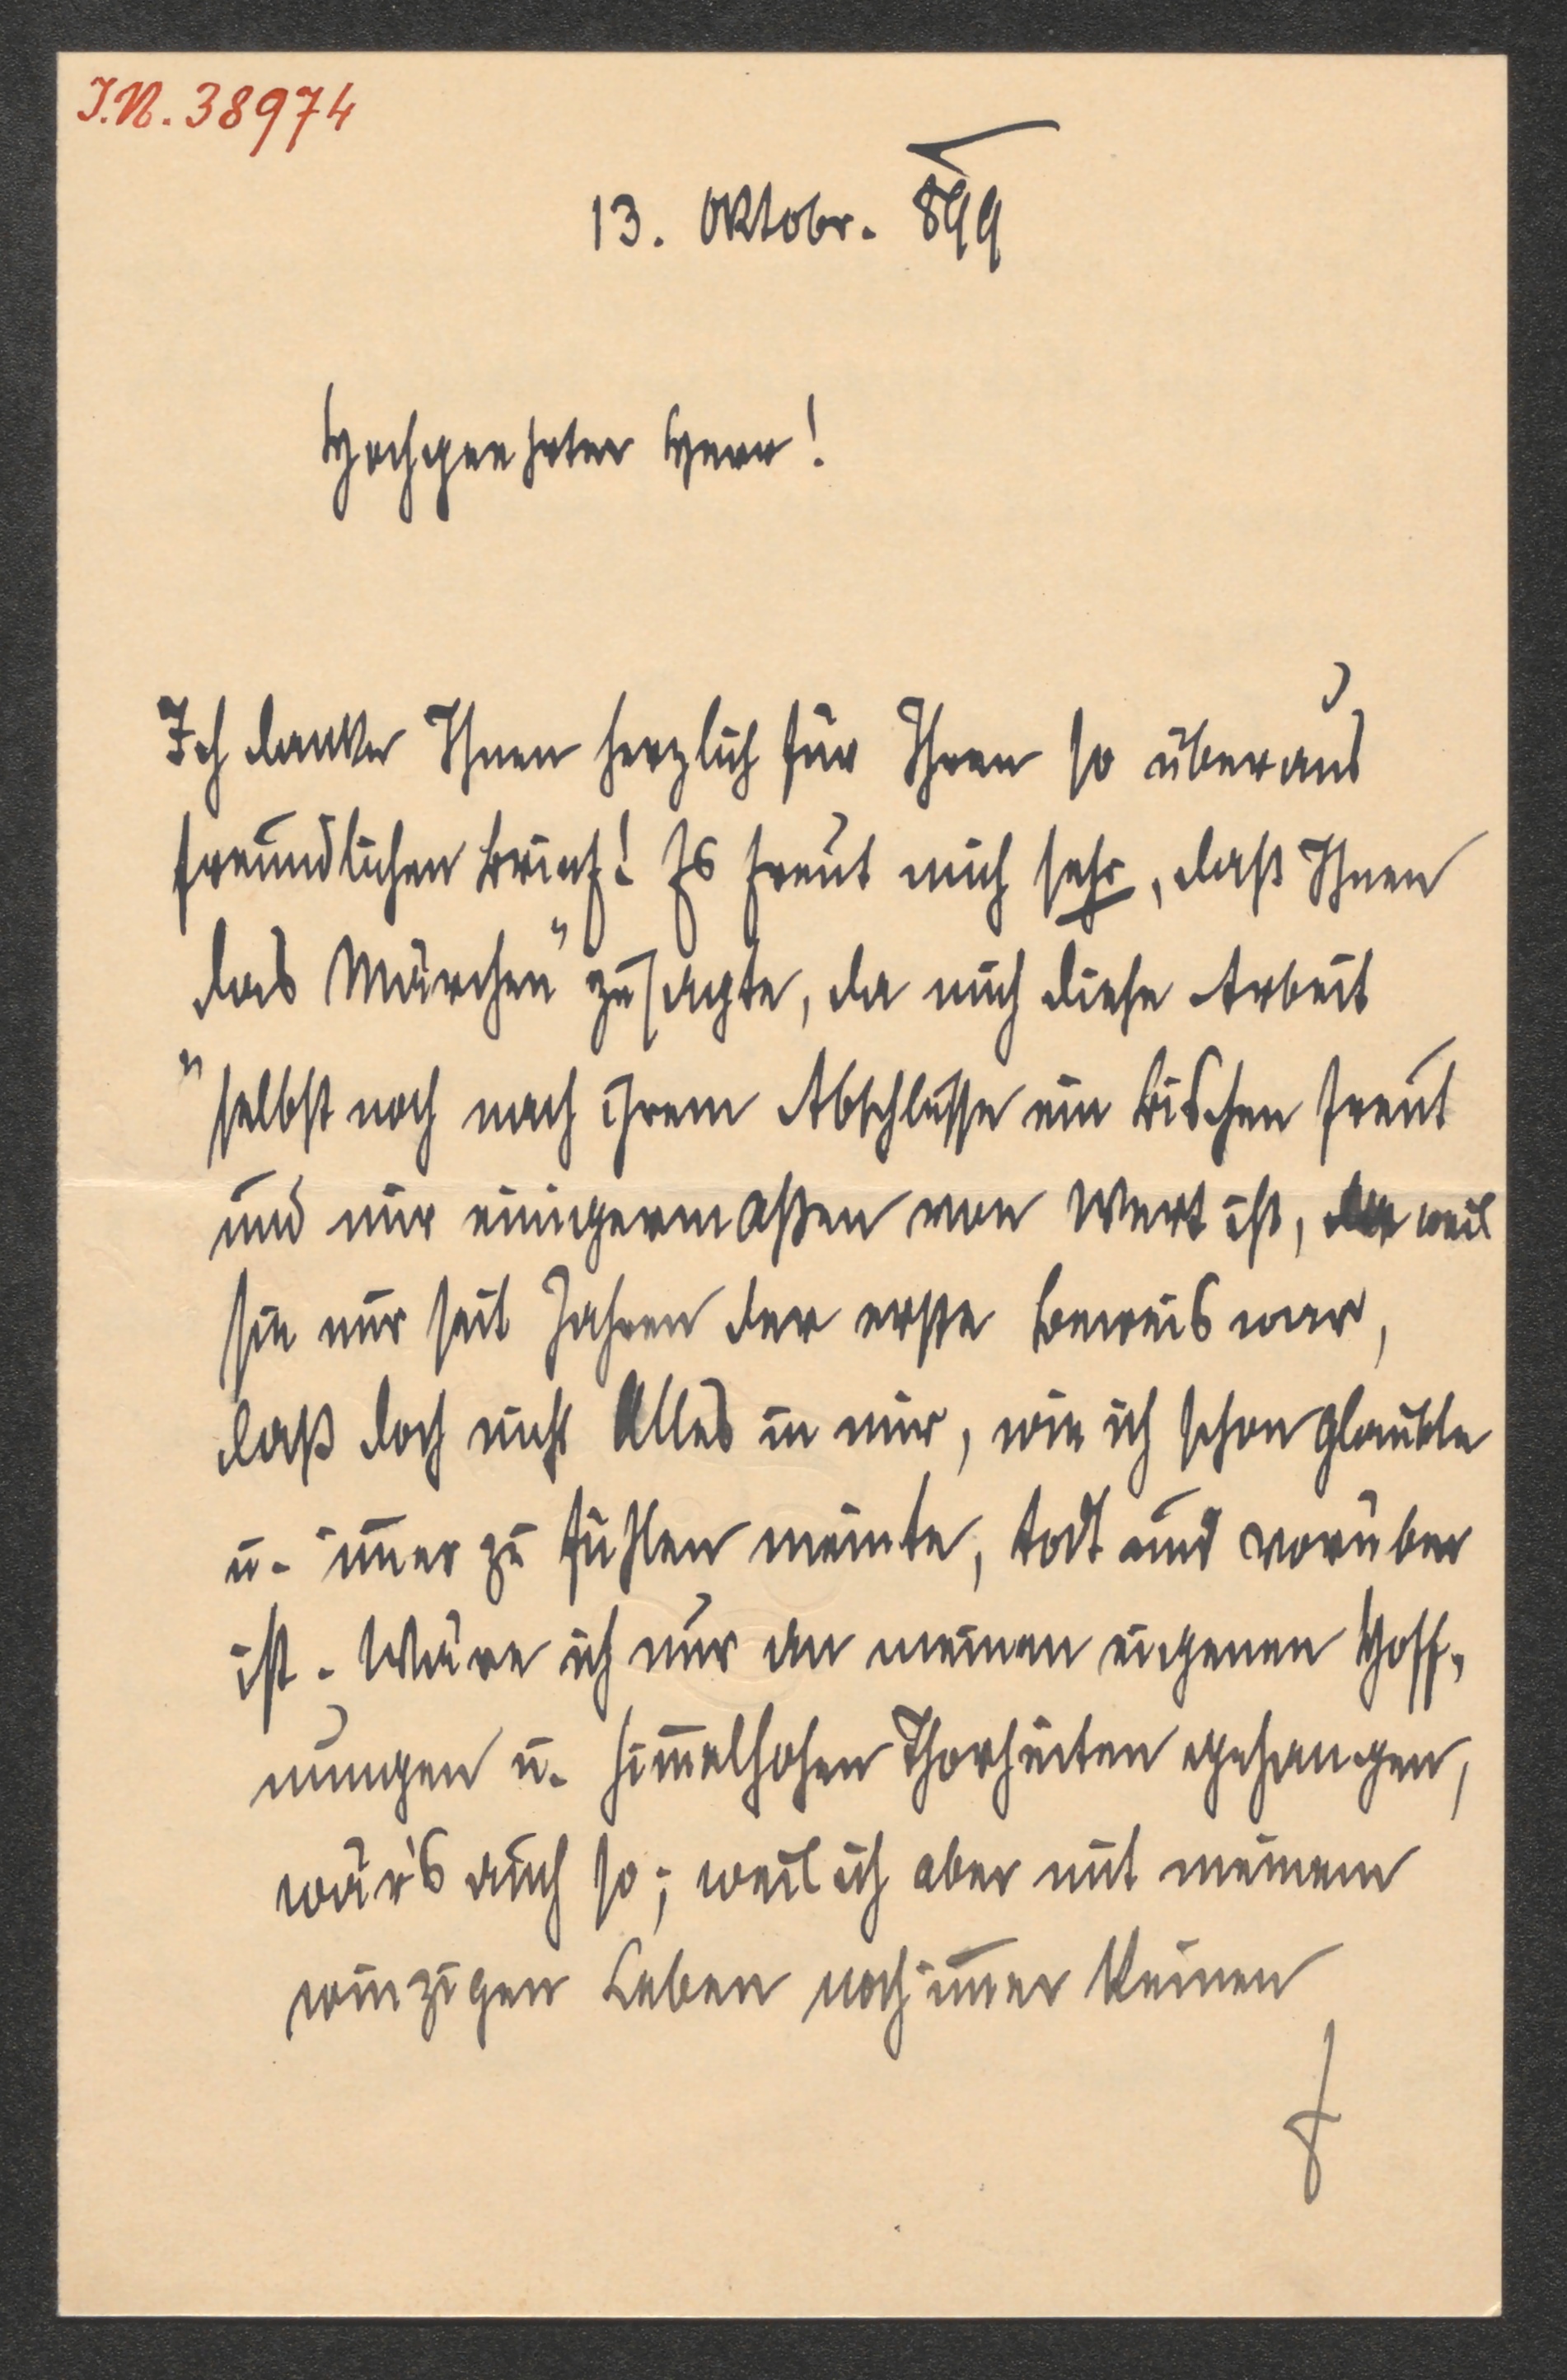 I.N. 38974
13. Oktobr. 899
Hochgeehrter Herr!
Ich danke Ihnen herzlich für Ihren so überaus
freundlichen Brief! Es freut mich sehr, daß Ihnen
das Märchen" zusagte, da mich diese Arbeit
"selbst noch nach ihrem Abschlusse ein bischen freut
und mir einigermaßen von Wert ist, weil
sie mir seit Jahren der erste Beweis war,
daß doch nicht Alles in mir, wie ich schon glaubte
u. im̅er zu fühlen meinte, todt und vorüber
ist. Wäre ich nur an meinen eigenen Hoff-
nungen u. him̅elhohen Thorheiten gehangen,
wär's auch so; weil ich aber mit meinem
winzigen Leben noch im̅er keinen